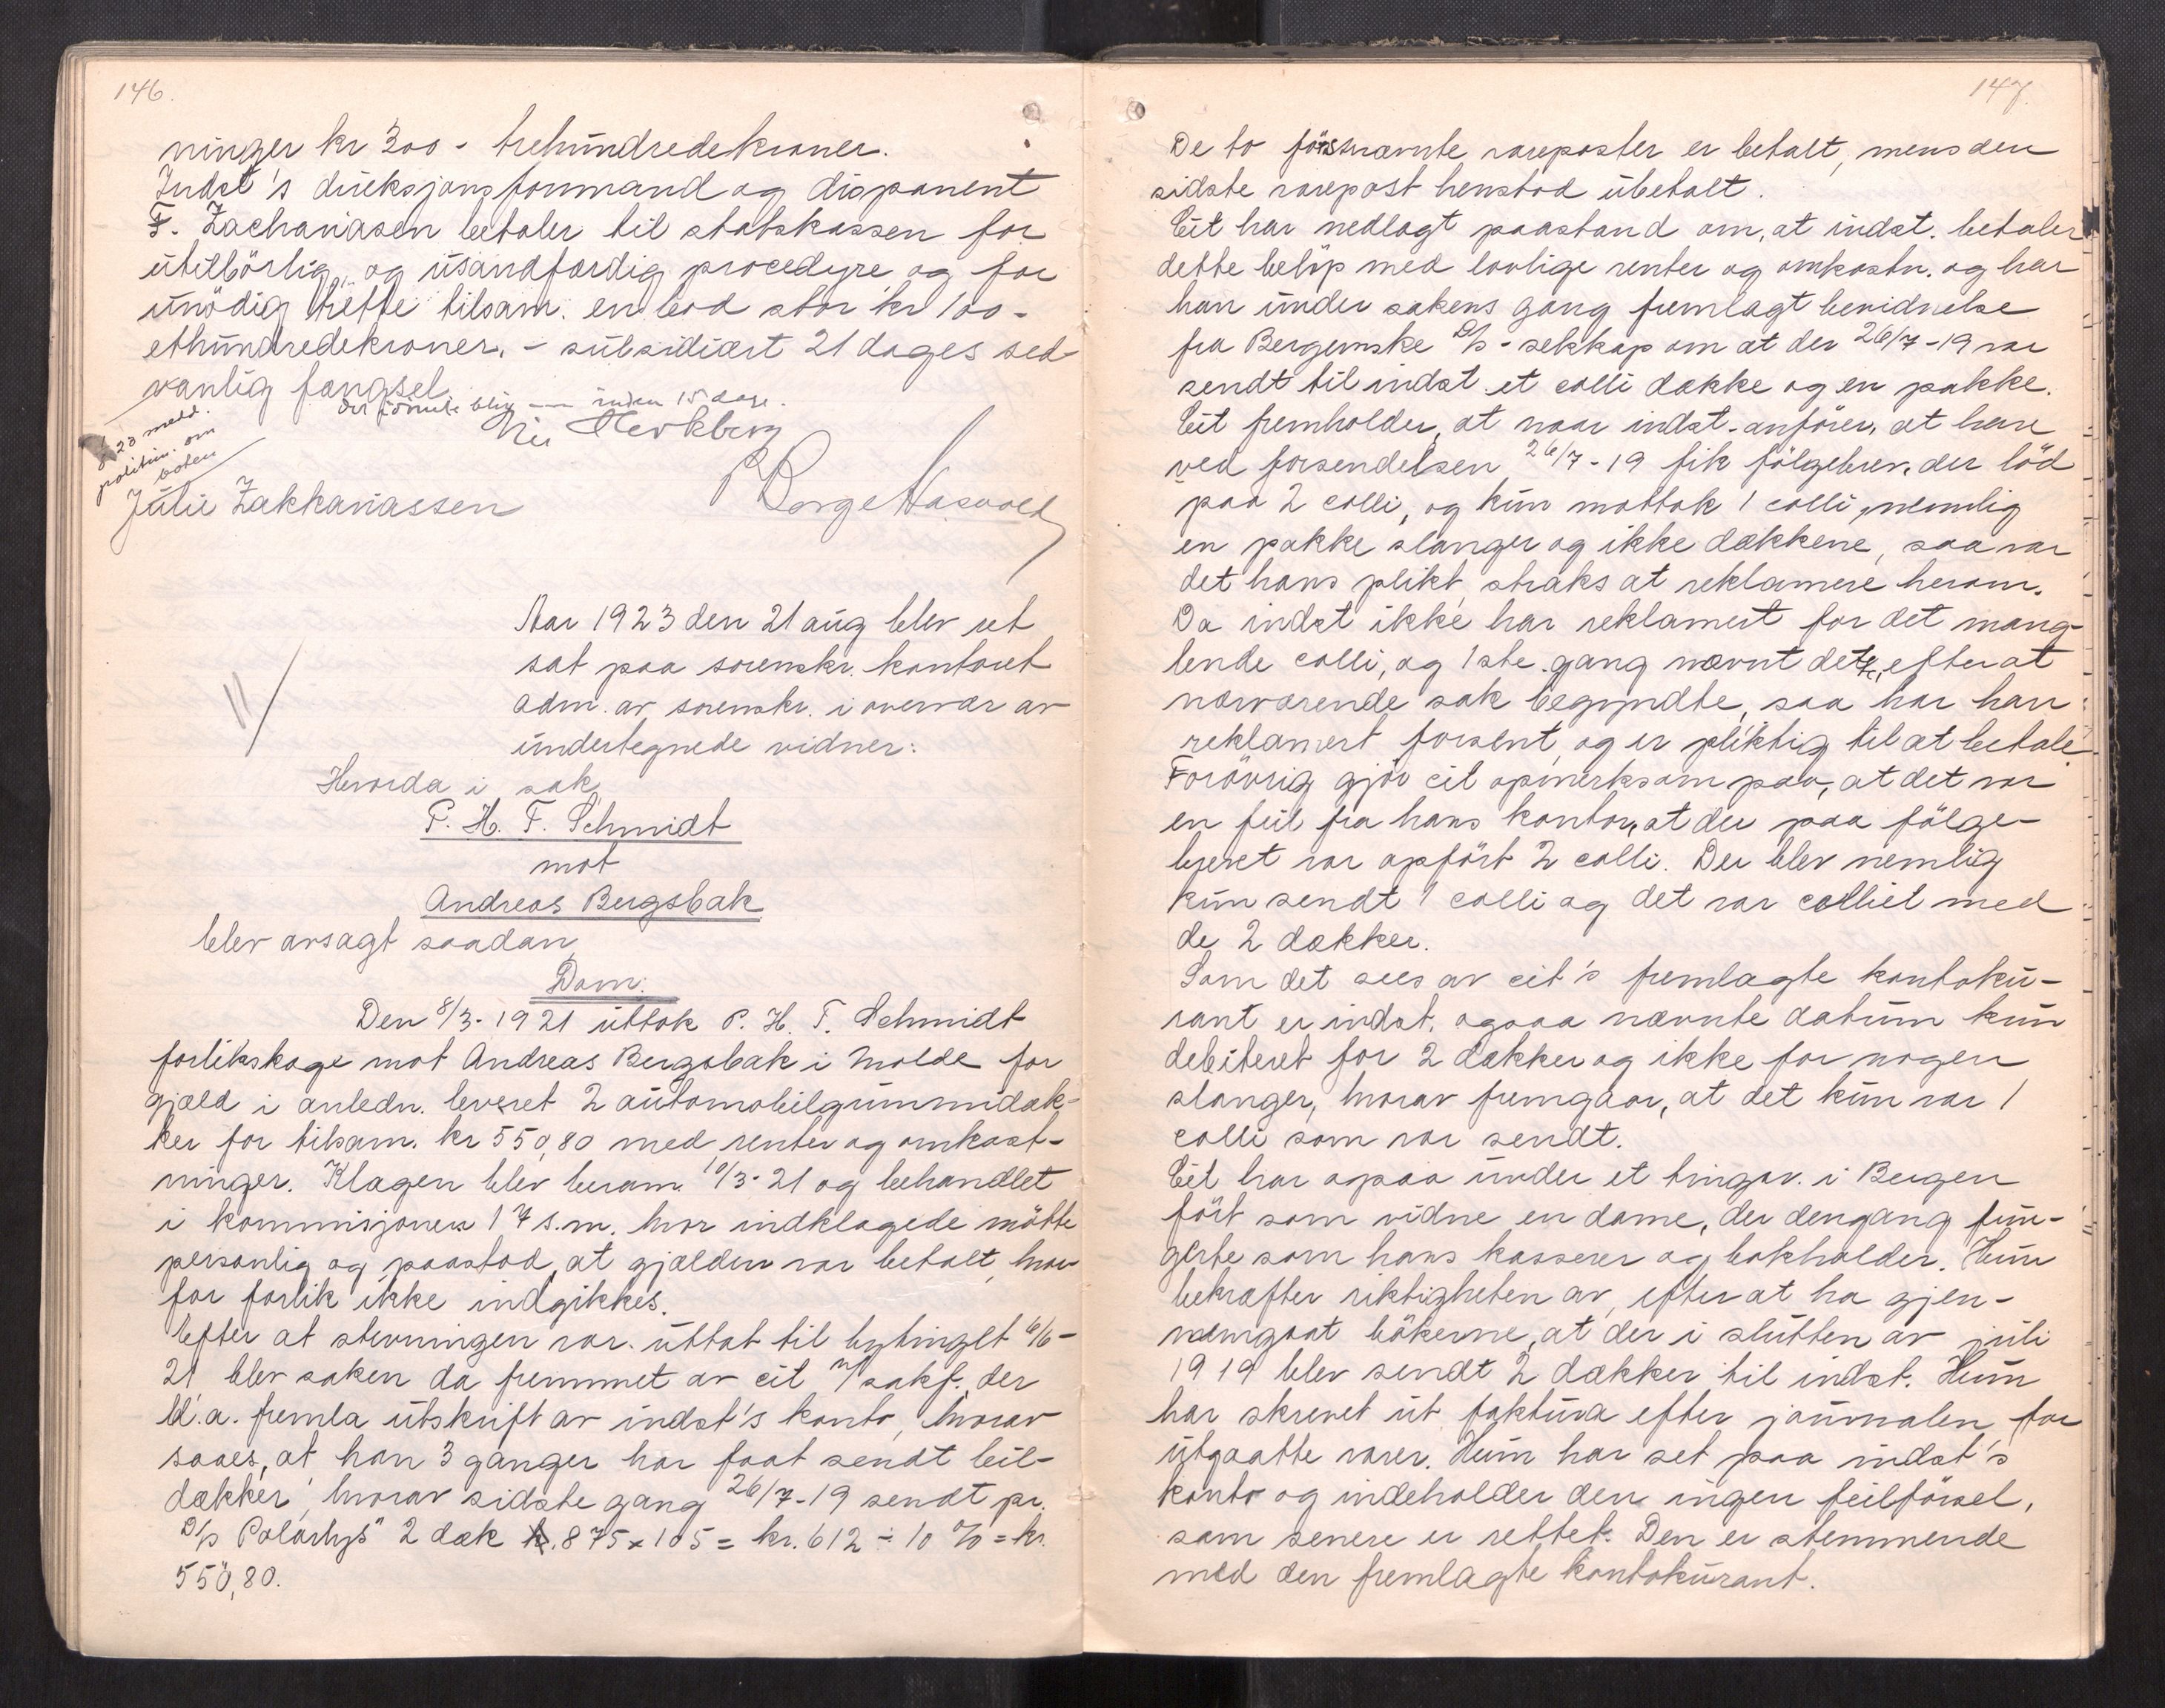 146.
ninger kr 300 - trehundredekroner.
Indst's direksjonsformand og disponent
F. Zachariasen betaler til statskassen for
utilbörlig, og usandfærdig procedyre og for
unödig trette tilsam. en bod stor kr 100-
ethundredekroner. - subsidiært 21 dages sed-
vanlig fængsel.
inden 15 dage.
23 meld.
politim. om
boten
Julie Zakkariassen
Aar 1923 den 21 aug blev ret
sat paa sorenskr. kontoret
adm. av sorenskr. i overvær av
undertegnede vidner:
11/
Hvorda i sak
P. H. F. Schmidt
mot
Andreas Bergsbak
blev avsagt saadan
Dom:
Den 8/3-1921 uttok P. H. F. Schmidt
forliksklage mot Andreas Bergsbak i Molde for
gjæld i anledn. leveret 2 automobilgummidæk-
ker for tilsam. kr 550,80 med renter og omkost-
ninger. Klagen blev beram. 10/3-21 og behandlet
i kommisjonen 17 s.m. hvor indklagede mötte
personlig og paastod, at gjælden var betalt, hvor-
for forlik ikke indgikkes.
Efter at stevningen var uttat til bytinget 6/6-
21 blev saken da fremmet av cit v/ sakf. der
bl.a. fremla utskrift av indst's konto, hvorav
saaes, at han 3 ganger har faat sendt bil-
dækker, hvorav sidste gang 26/7-19 sendt pr.
D/s Polarlys" 2 dæk 875 x 105 = kr. 612 ÷ 10 % = kr.
550,80.
147.
De to förstnævnte vareposter er betalt, mens den
sidste varepost henstod ubetalt.
Cit har nedlagt paastand om, at indst. betaler
dette belöp med lovlige renter og omkostn. og har
han under sakens gang fremlagt bevidnelse
fra Bergenske D/s-selskap om at der 26/7-19 var
sendt til indst et colli dække og en pakke.
Cit fremholder, at naar indst. anförer, at han
ved forsendelsen 26/7-19 fik fölgebrev, der löd
paa 2 colli, og kun mottok 1 colli, nemlig
en pakke slanger og ikke dækkene, saa var
det hans plikt straks at reklamere herom.
Da indst ikke har reklamert for det mang-
lende colli, og 1ste gang nævnt dette, efter at
nærværende sak begyndte, saa har han
reklamert forsent, og er pliktig til at betale.
Forövrig gjör cit opmerksom paa, at det var
en feil fra hans kontor, at der paa fölge-
brevet var opfört 2 colli. Der blev nemlig
kun sendt 1 colli og det var colliet med
de 2 dækker.
Som det sees av cit's fremlagte kontoku-
rant er indst. ogsaa nævnte datum kun
debiteret for 2 dækker og ikke for nogen
slanger, hvorav fremgaar, at det kun var 1
colli som var sendt.
Cit har ogsaa under et tingsv. i Bergen
fört som vidne en dame, der dengang fun-
gerte som hans kasserer og bokholder. Hun
bekræfter riktigheten av, efter at ha gjen-
nemgaat bökerne, at der i slutten av juli
1919 blev sendt 2 dækker til indst. Hun
har skrevet ut faktura efter journalen for
utgaatte varer. Hun har set paa indst's
konto og indeholder den ingen feilförsel,
som senere er rettet. Den er stemmende
med den fremlagte kontokurant.